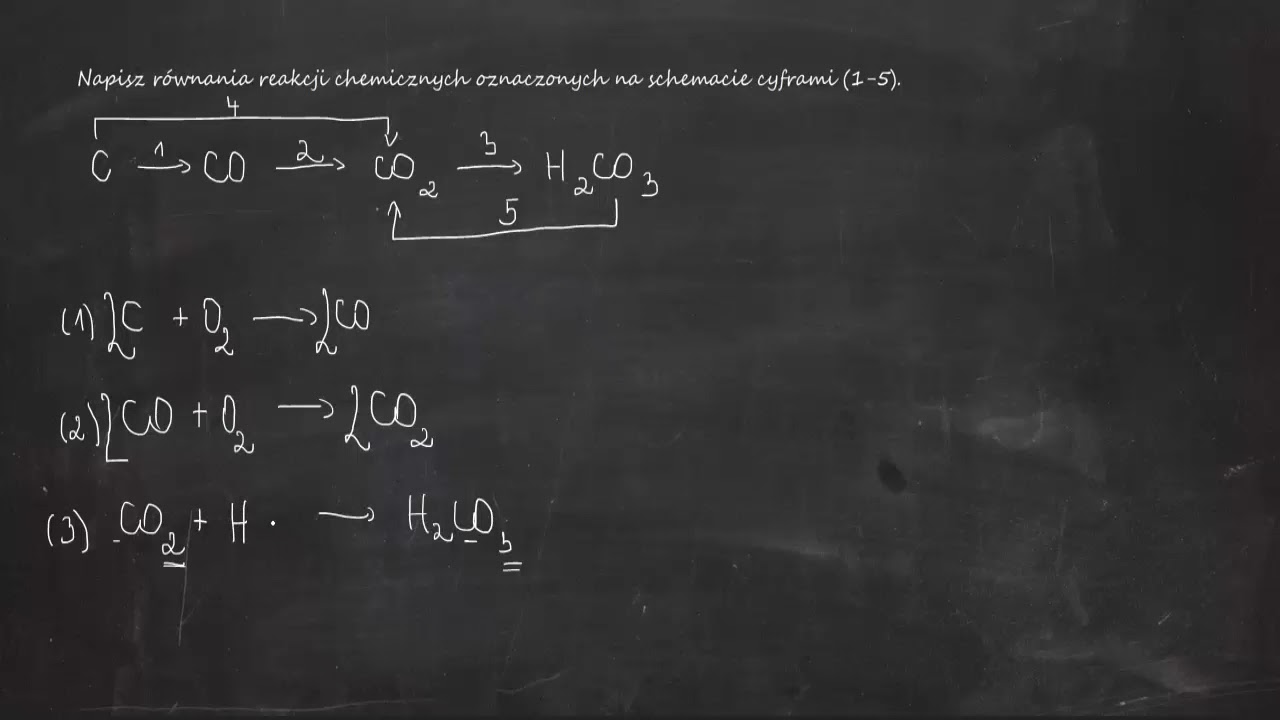 Napisz równania reakcji chemicznych oznaczonych na schemacie cyframi (1-5).
4
C 1→ CO 2→ CO₂ 3→ H₂CO₃
5
(1) 2C + O₂ → 2CO
(2) 2CO + O₂ → 2CO₂
(3) CO₂ + H · → H₂CO₃